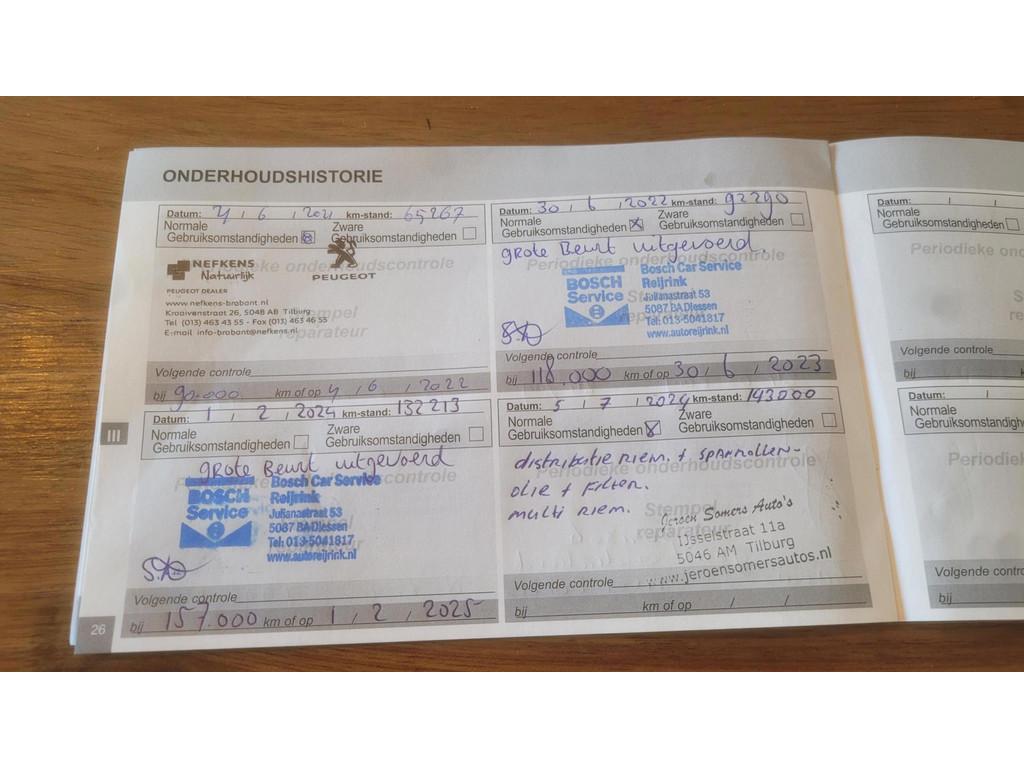 ONDERHOUDSHISTORIE
Datum: 4 / 6 / 2021 km-stand: 65267
Normale Gebruiksomstandigheden Zware Gebruiksomstandigheden
Periodieke onderhoudscontrole
NEFKENS
Natuurlijk
PEUGEOT
PEUGEOT DEALER
www.nefkens-brabant.nl
Kraaivenstraat 26, 5048 AB Tilburg
Tel (013) 463 43 55 - Fax (013) 463 46 55
E-mail info-brabant@nefkens.nl
Stempel
reparateur
Volgende controle
bij 90.000 km of op 4 / 6 / 2022
Datum: 30 / 6 / 2022 km-stand: 92290
Normale Gebruiksomstandigheden Zware Gebruiksomstandigheden
grote Beurt uitgevoerd
Periodieke onderhoudscontrole
BOSCH
Service
Bosch Car Service
Reijrink
Julianastraat 53
5087 BA Diessen
Tel: 013-5041817
www.autoreijrink.nl
Volgende controle
bij 118.000 km of op 30 / 6 / 2023
Datum: 1 / 2 / 2024 km-stand: 132213
Normale Gebruiksomstandigheden Zware Gebruiksomstandigheden
grote Beurt uitgevoerd
BOSCH
Service
Bosch Car Service
Reijrink
Julianastraat 53
5087 BA Diessen
Tel: 013-5041817
www.autoreijrink.nl
Volgende controle
bij 157.000 km of op 1 / 2 / 2025
Datum: 5 / 7 / 2024 km-stand: 143000
Normale Gebruiksomstandigheden Zware Gebruiksomstandigheden
distributie riem. + spanrollen-
Periodieke onderhoudscontrole
olie + Filter.
multi riem.
Stempel
reparateur
Jeroen Somers Auto's
IJsselstraat 11a
5046 AM Tilburg
www.jeroensomersautos.nl
Volgende controle
bij km of op / /
III
26
Datum: / /
Normale
Gebruiksomstandigheden
Periodiek
Volgende controle
bij
Datum: /
Normale
Gebruiksomstandigheden
Periodiek
Volgende contro
bij